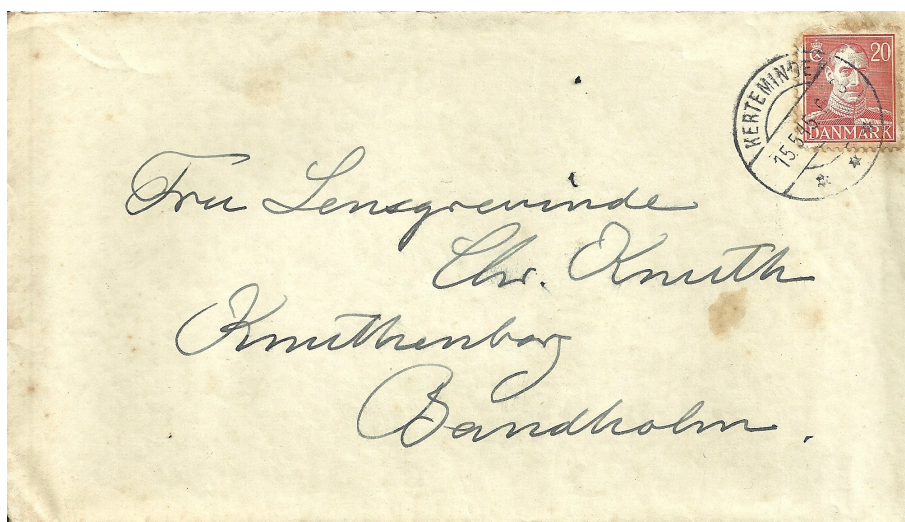 20
DANMARK
KERTEMINDE
15.5.45
Fru Lensgrevinde
Chr. Knuth
Knuthenborg
Bandholm.